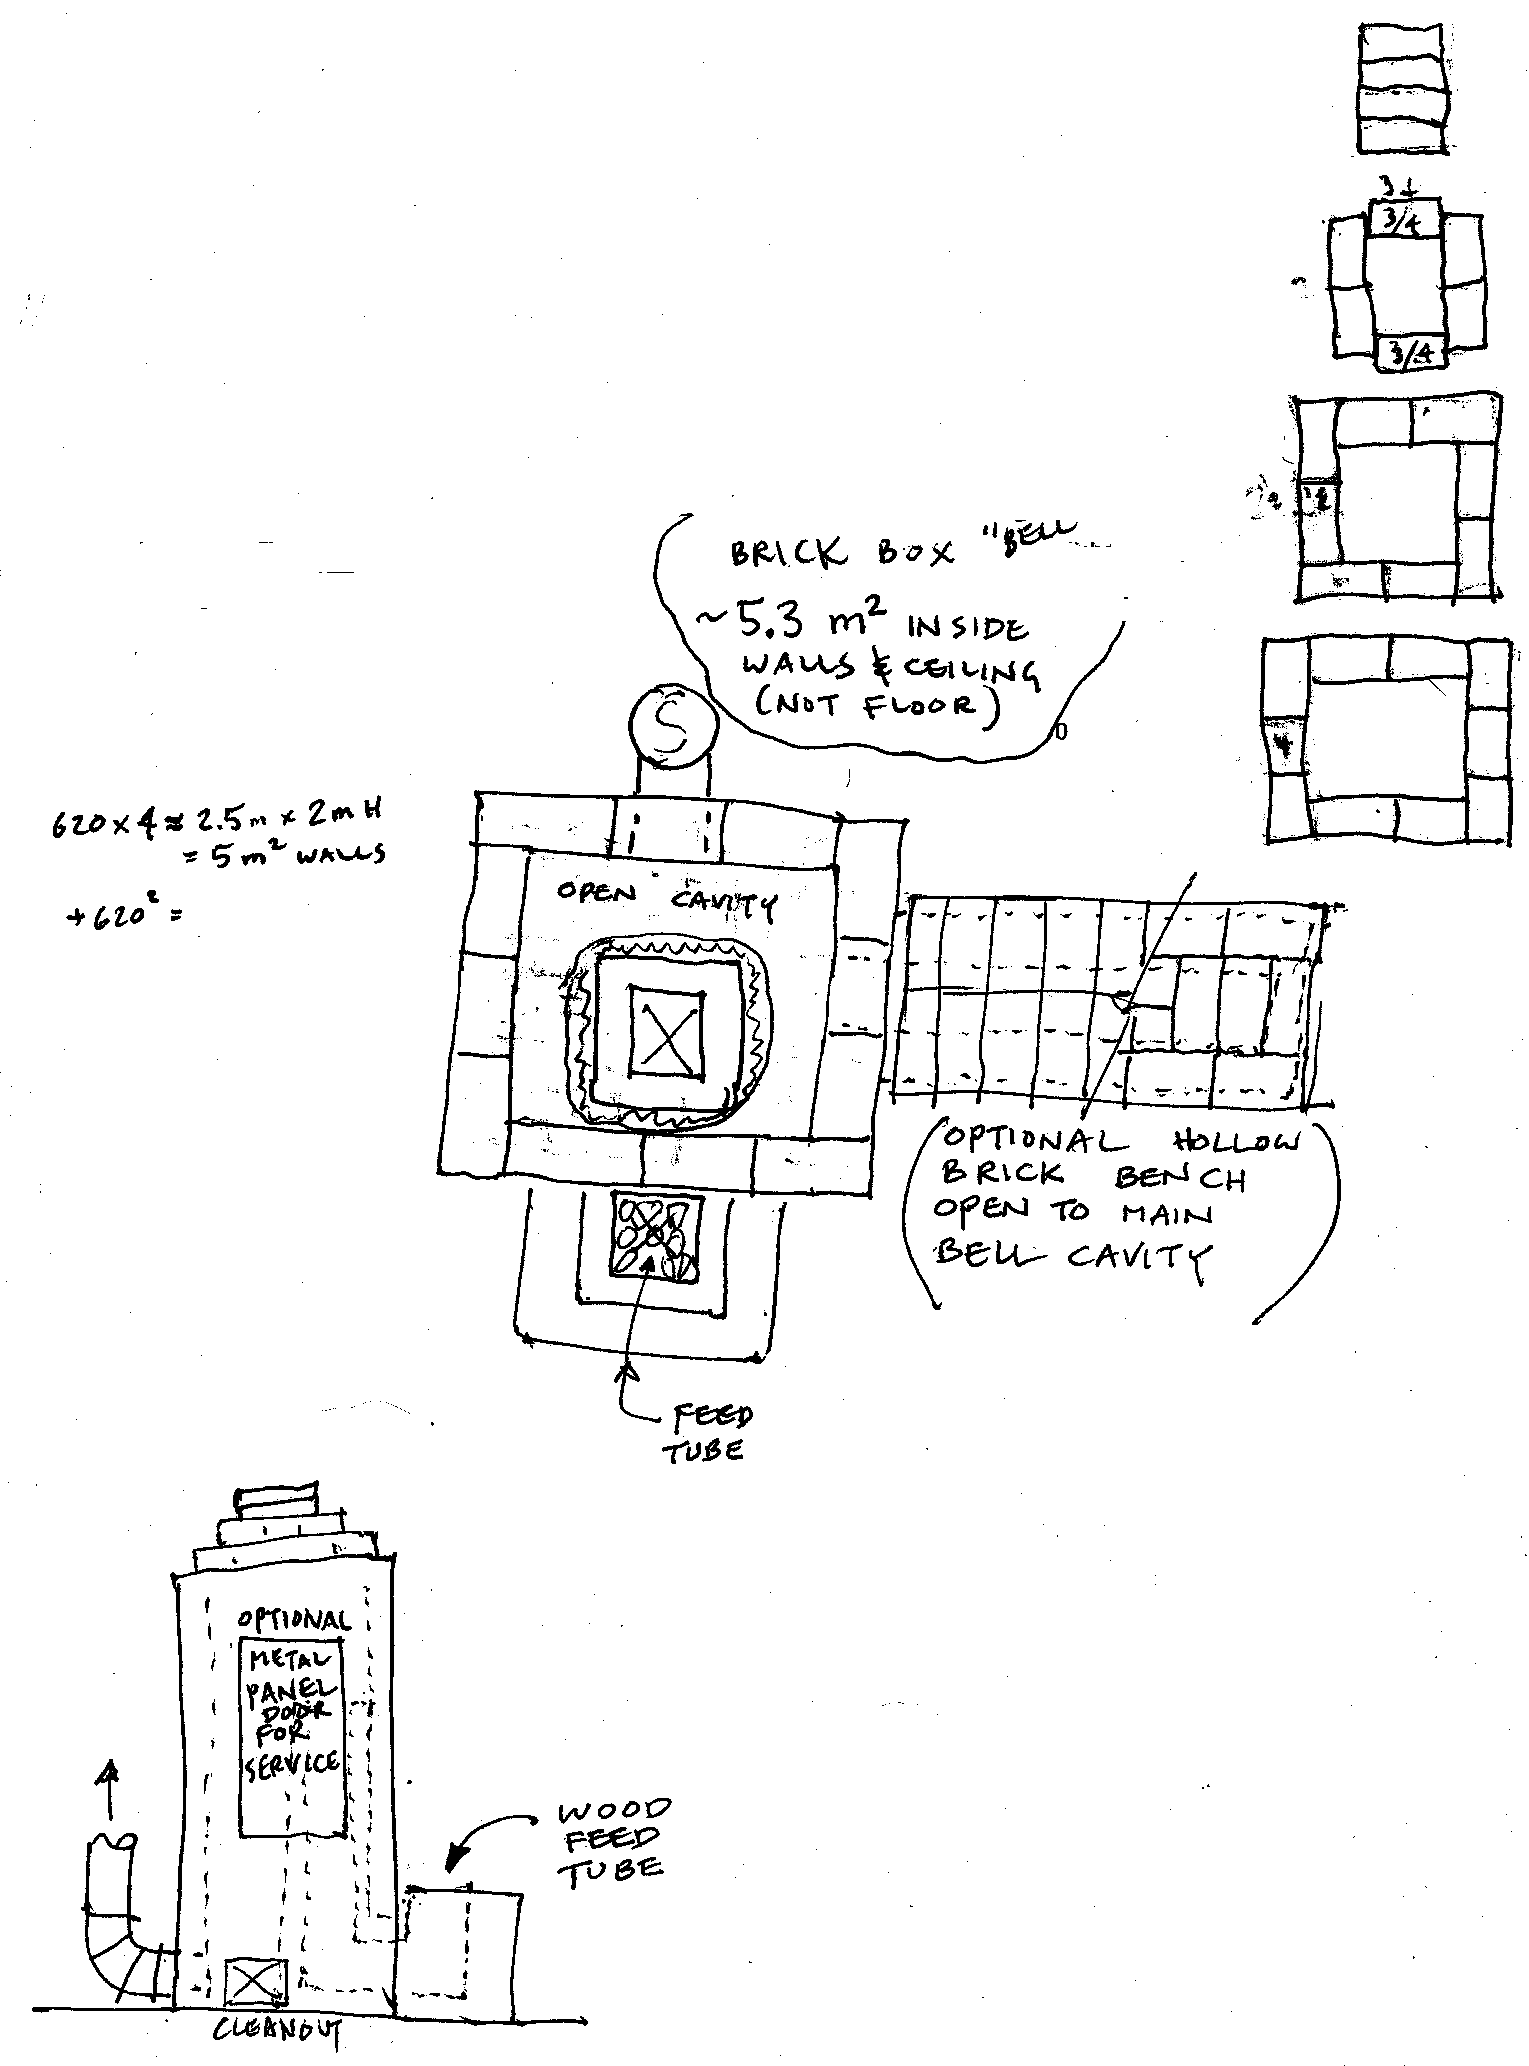 3/4
3/4
1/2
BRICK BOX "BELL
~5.3 m² INSIDE
WALLS & CEILING
(NOT FLOOR)
S
620 x 4 ≈ 2.5m x 2m H
= 5 m² WALLS
+ 620² =
OPEN CAVITY
(OPTIONAL HOLLOW
BRICK BENCH
OPEN TO MAIN
BELL CAVITY)
FEED
TUBE
OPTIONAL
METAL
PANEL
DOOR
FOR
SERVICE
WOOD
FEED
TUBE
CLEANOUT